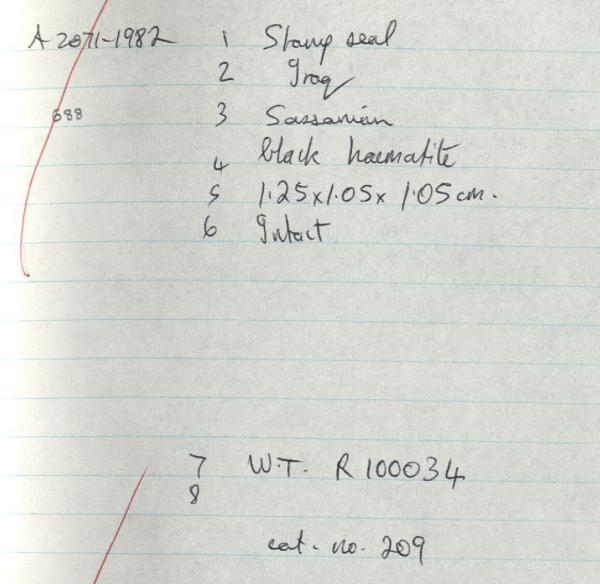 A 2071-1982 1 Stamp seal
2 Iraq
688 3 Sassanian
4 black haematite
5 1.25x1.05x 1.05 cm.
6 Intact
7 W.T. R 100034
8
cat. no. 209